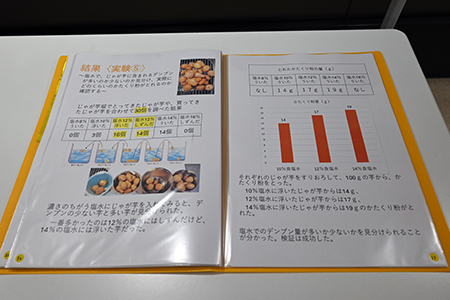 結果〈実験⑤〉
～塩水で、じゃが芋に含まれるデンプン
が多いのか少ないのか気分け、実際に
どのくらいのかたくり粉がとれるのか
確認する～
じゃが芋畑でとってきたじゃが芋や、買ってき
たじゃが芋を合わせて30個を調べた結果
0個 3個 16個 14個 14個 0個
濃さのちがう塩水にじゃが芋を入れてみると、デ
ンプンの少ない芋と多い芋が見分けられた。
一番多かったのは12％の塩水にはしずんだけど、
14％の塩水には浮いた芋だった。
とれたかたくり粉の量（ｇ）
なし 14ｇ 17ｇ 19ｇ なし
かたくり粉量（ｇ）
14 17 19
10％食塩水 12％食塩水 14％食塩水
それぞれのじゃが芋をすりおろして、100ｇの芋から、か
たくり粉をとった。
10％塩水に浮いたじゃが芋からは14ｇ、
12％塩水に浮いたじゃが芋からは17ｇ、
14％塩水に浮いたじゃが芋からは19ｇのかたくり粉がと
れた。
塩水でのデンプン量が多いか少ないかを見分けられること
が分かった。検証は成功した。